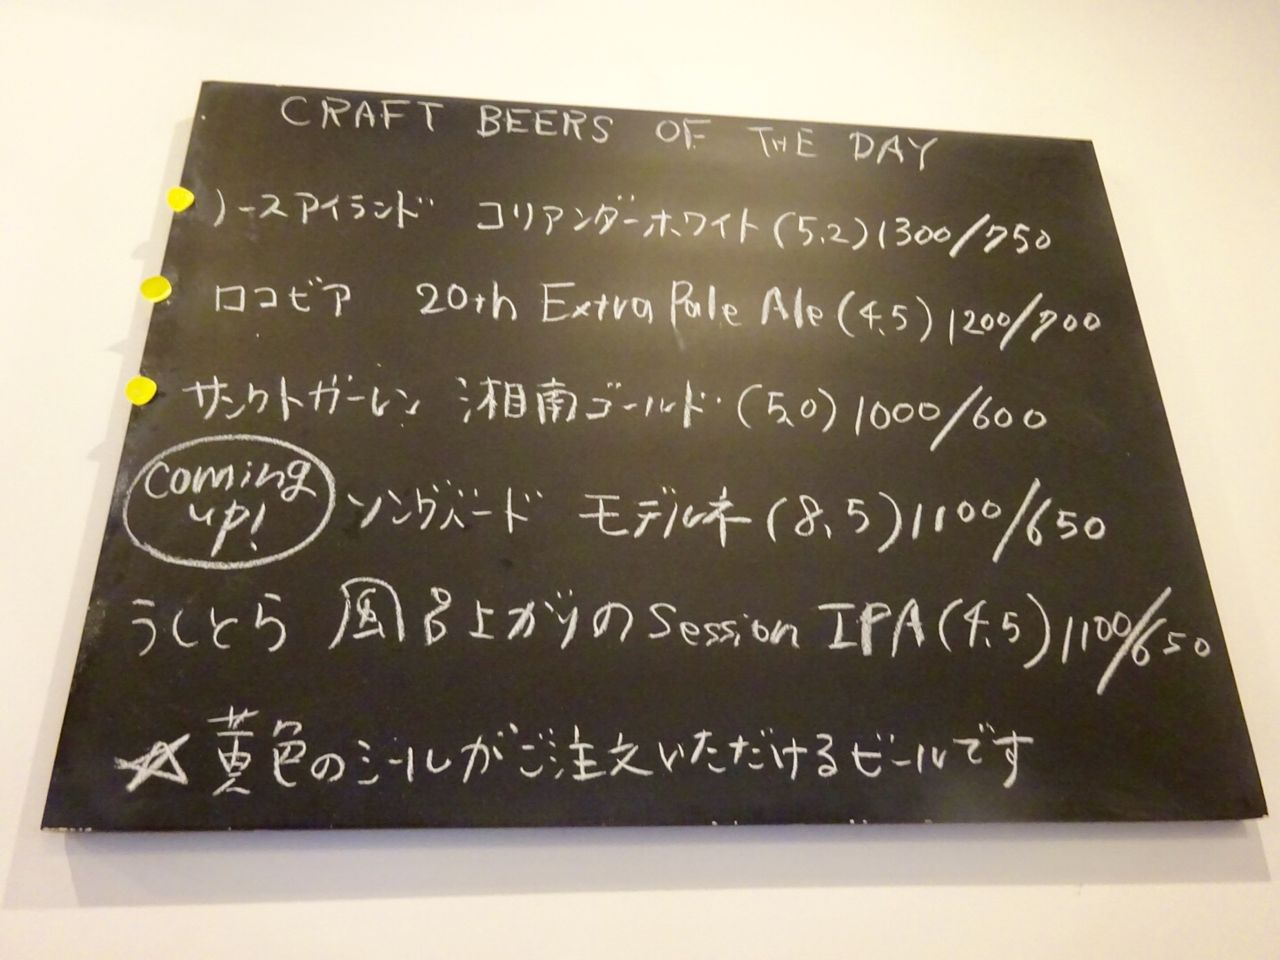 CRAFT BEERS OF THE DAY
ノースアイランド コリアンダーホワイト (5.2) 1300/750
ロコビア 20th Extra Pale Ale (4.5) 1200/700
サンクトガーレン 湘南ゴールド (5.0) 1000/600
coming up! ソングバード モデルネ (8.5) 1100/650
うしとら 風呂上がりのSession IPA (4.5) 1100/650
☆ 黄色のシールがご注文いただけるビールです